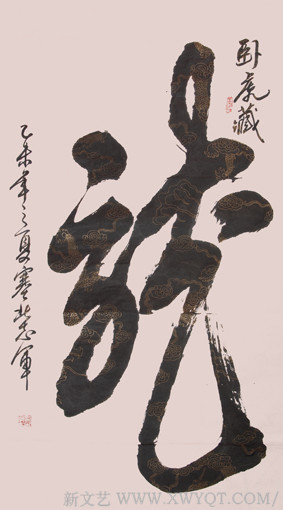 卧虎藏
龍
乙未年之夏塞北志军
新文艺 WWW.XWYQT.COM/